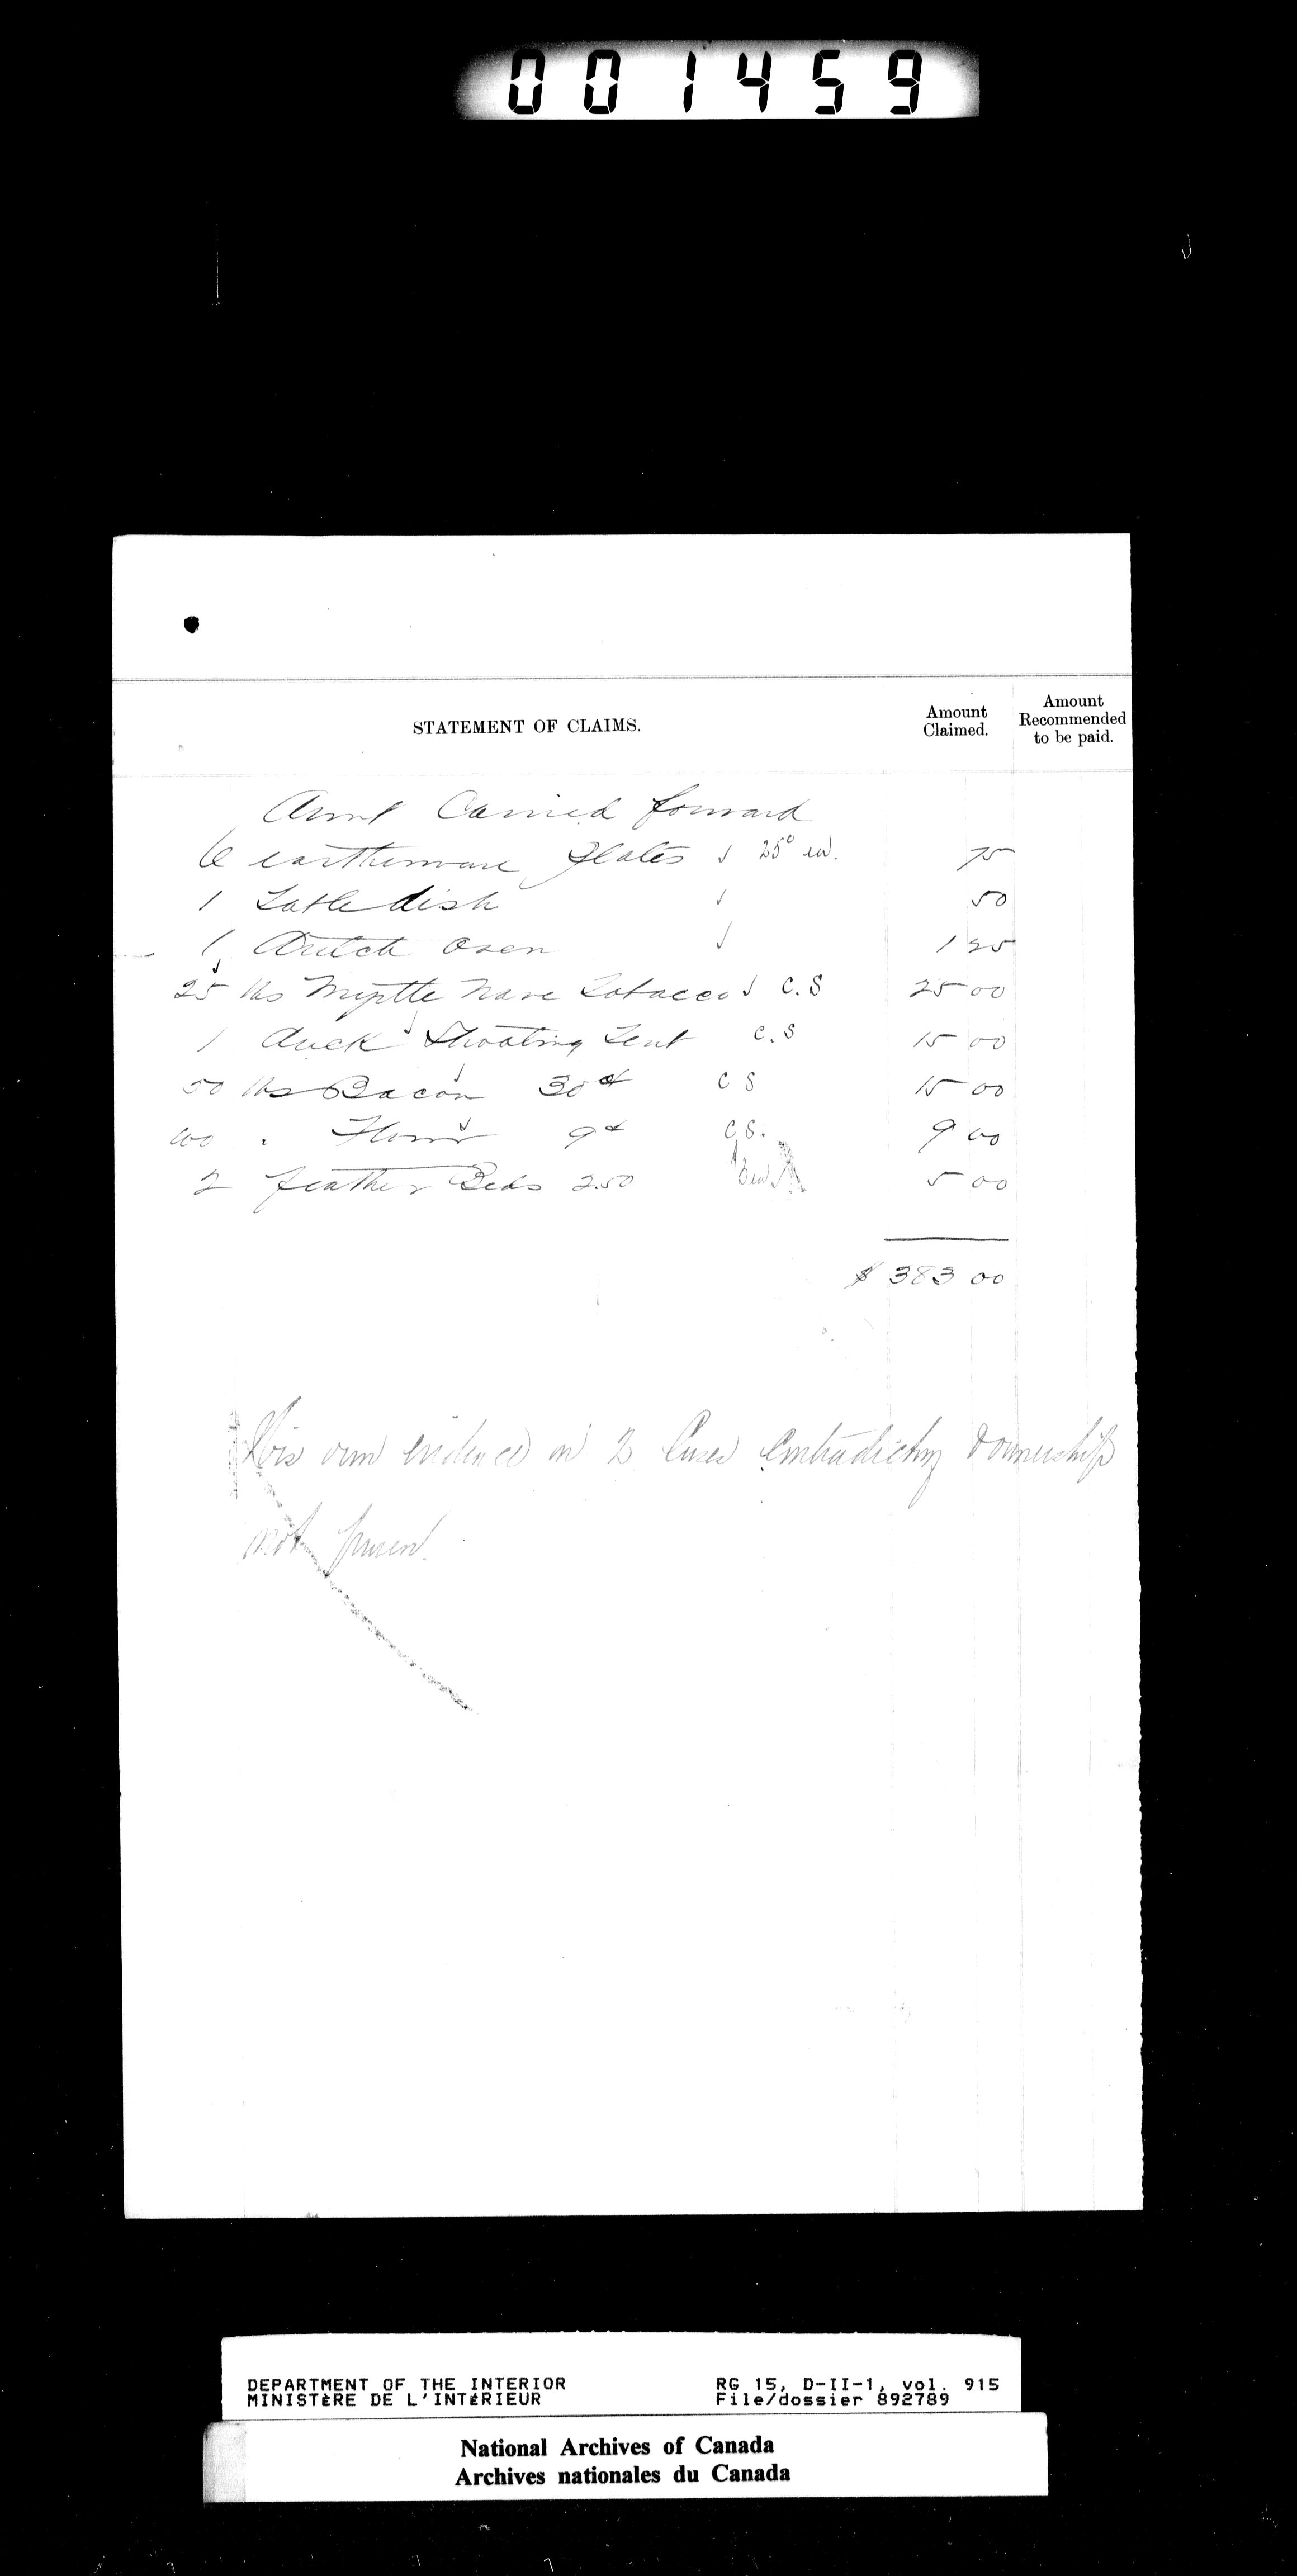 001459
STATEMENT OF CLAIMS.
Amount Claimed.
Amount Recommended to be paid.
Amt Carried forward
6 earthenware Plates √ 25° 75
1 Table dish √ 50
1 Dutch Oven √ 1 25
25 lbs Myrtle Nave Tobacco √ C.S 25 00
1 Duck √ Shooting Tent C.S 15 00
50 lbs Bacon √ 30¢ C S 15 00
100 " Flour √ 9¢ C.S. 9 00
2 feather Beds 2.50 5 00
$ 383 00
His own evidence in 2 Cases Contradictory & ownership
not proven.
DEPARTMENT OF THE INTERIOR RG 15, D-II-1, vol. 915
MINISTÈRE DE L'INTÉRIEUR File/dossier 892789
National Archives of Canada
Archives nationales du Canada